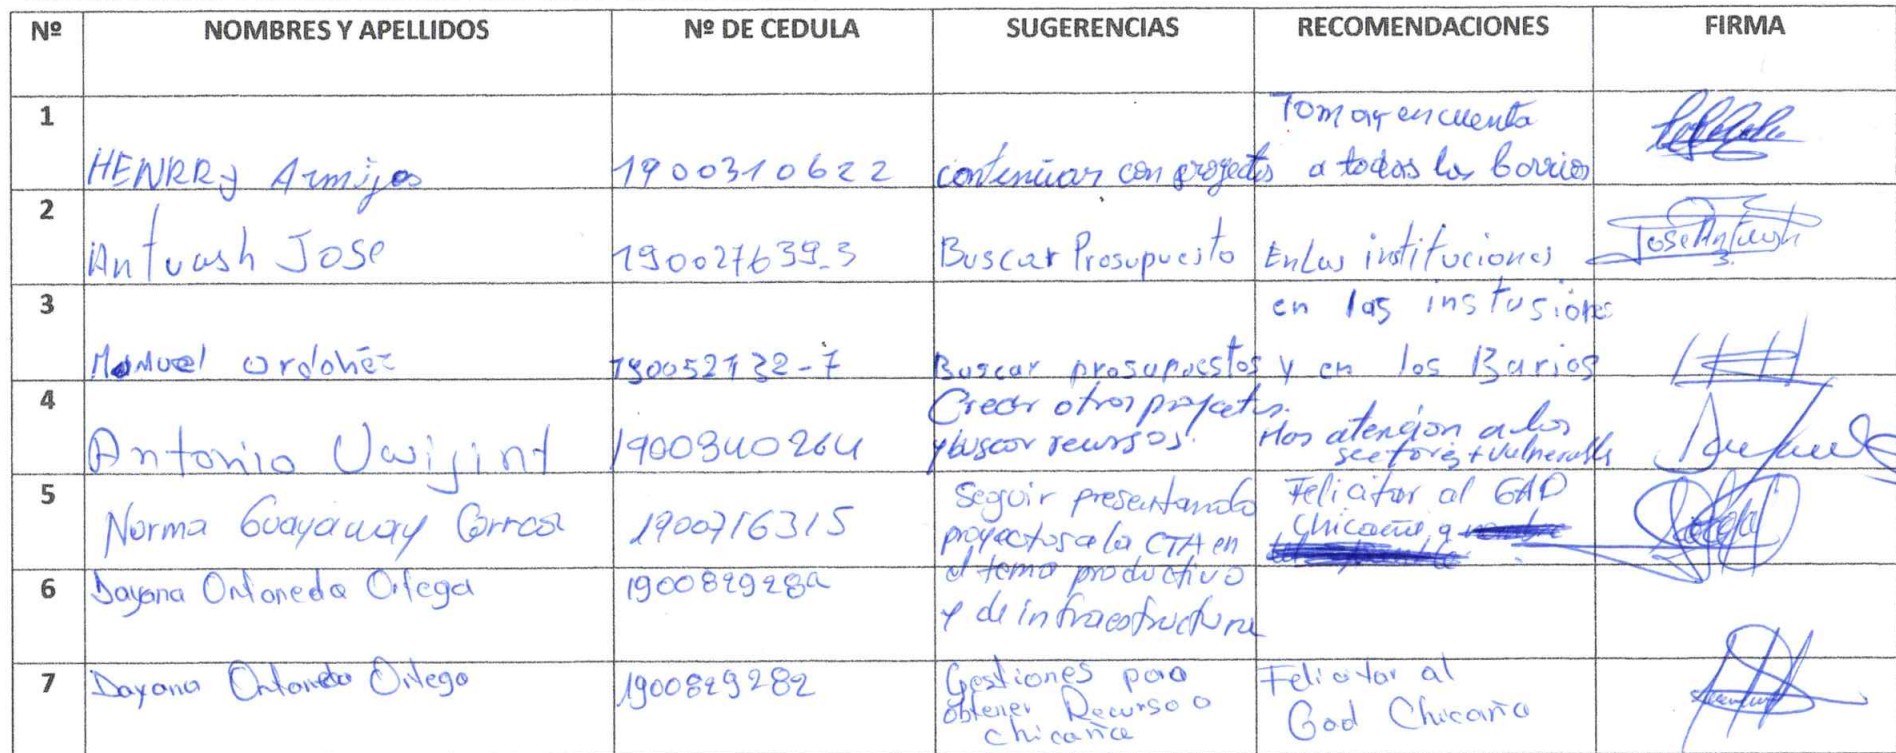 Nº NOMBRES Y APELLIDOS Nº DE CEDULA SUGERENCIAS RECOMENDACIONES FIRMA
1 HENRRy Armijos 1900310622 continuar con proyectos Tomar en cuenta
a todos los barrios
2 Antuash Jose 190027639-3 Buscar Prosupuesto En Las instituciones Jose Antuash
3 Manuel ordoñez 190052132-7 Buscar prosupuestos en las instusiones
y en los Barios
4 Antonio Uwijint 1900340264 Crear otros proyectos
y buscar recursos. Mas atención a los
sectores + vulnerables
5 Norma Guayauay Correa 1900716315 Seguir presentando
proyectos a la CTA en
el tema productivo
y de infraestructura
Felicitar al GAD
Chicaña
6 Dayana Ontaneda Ortega
7 Dayana Ontaneda Ortega 1900829282 Gestiones para
obtener Recurso a
chicaña
Felicitar al
Gad Chicaña